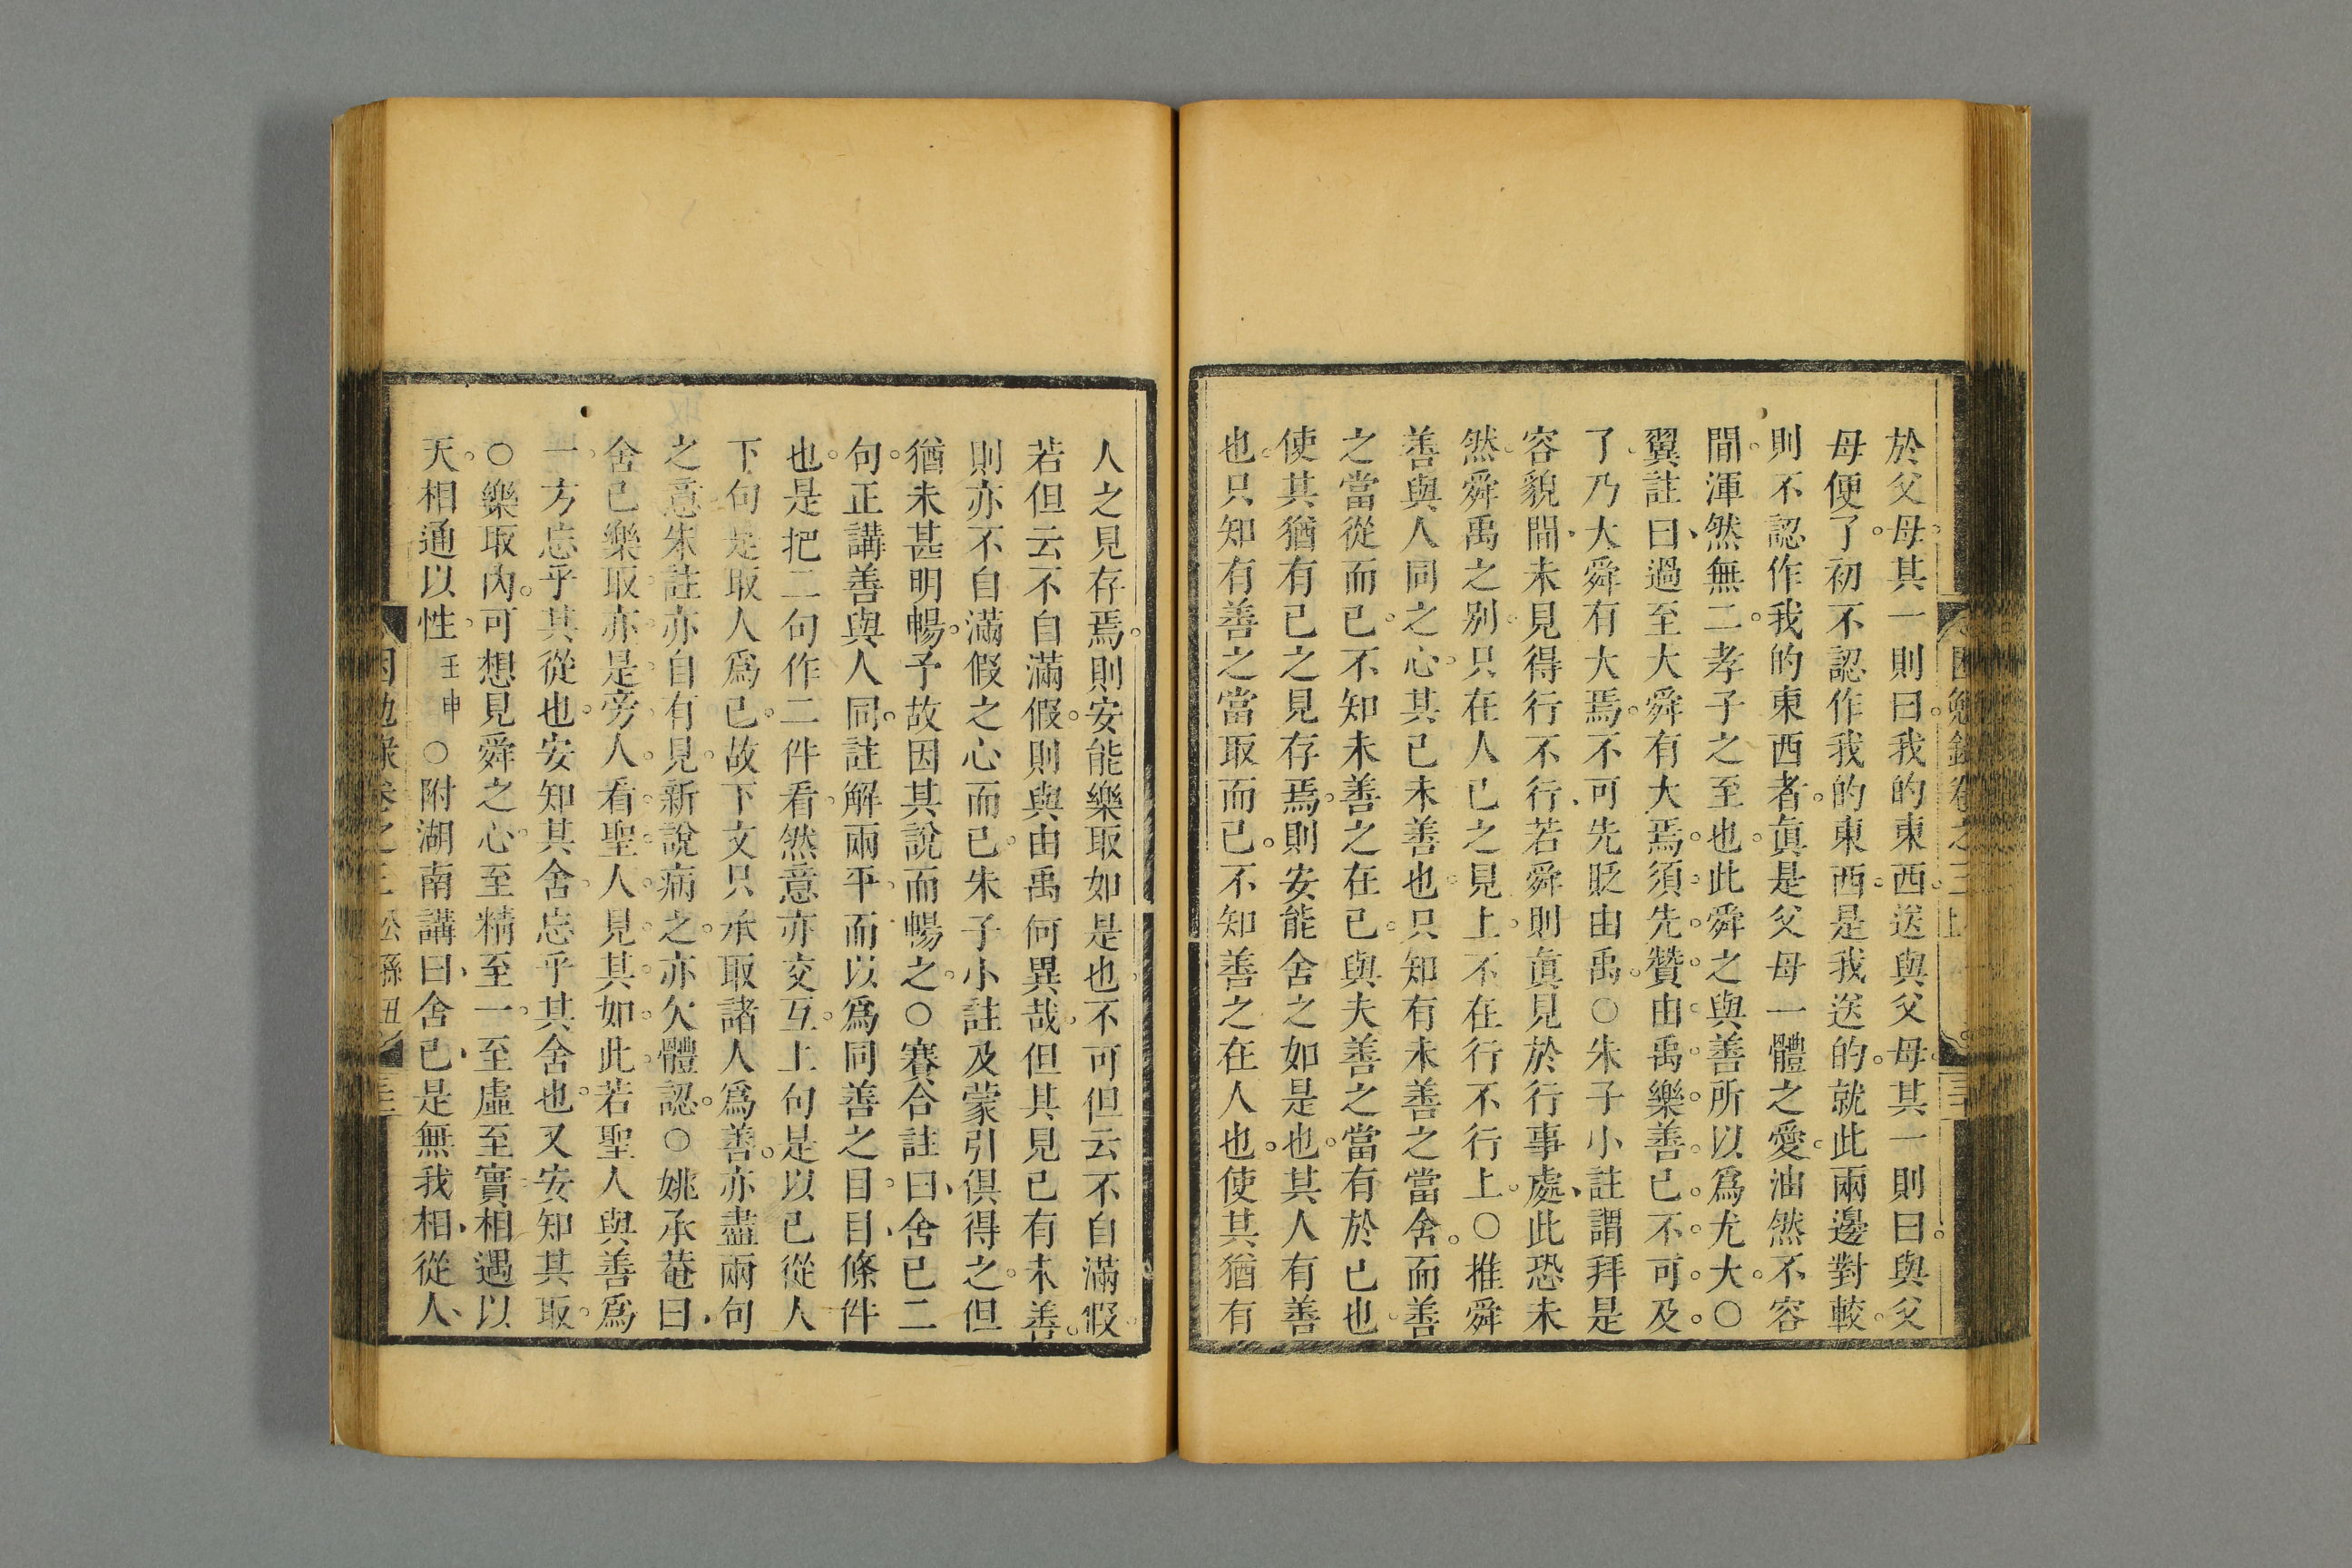 於父母其一則曰我的東西送與父母其一則曰與父
母便了初不認作我的東西是我送的就此兩邊對較
則不認作我的東西者眞是父母一體之愛油然不容
間渾然無二孝子之至也此舜之與善所以爲尤大○
翼註曰過至大舜有大焉須先贊由禹樂善已不可及
了乃大舜有大焉不可先貶由禹○朱子小註謂拜是
容貌間未見得行不行若舜則眞見於行事處此恐未
然舜禹之别只在人已之見上不在行不行上○推舜
善與人同之心其己未善也只知有未善之當舍而善
之當從而已不知未善之在已與夫善之當有於已也
使其猶有已之見存焉則安能舍之如是也其人有善
也只知有善之當取而已不知善之在人也使其猶有
人之見存焉則安能樂取如是也不可但云不自滿假
若但云不自滿假則與由禹何異哉但其見已有未善
則亦不自滿假之心而已朱子小註及蒙引俱得之但
猶未甚明暢予故因其說而暢之○賽合註曰舍已二
句正講善與人同註解兩平而以爲同善之目目條件
也是把二句作二件看然意亦交互上句是以已從人
下句是取人爲已故下文只承取諸人爲善亦盡兩句
之意朱註亦自有見新說病之亦欠體認○姚承菴曰
舍已樂取亦是旁人看聖人見其如此若聖人與善爲
一方忘乎其從也安知其舍忘乎其舍也又安知其取
○樂取內可想見舜之心至精至一至虛至實相遇以
天相通以性壬申○附湖南講曰舍已是無我相從人